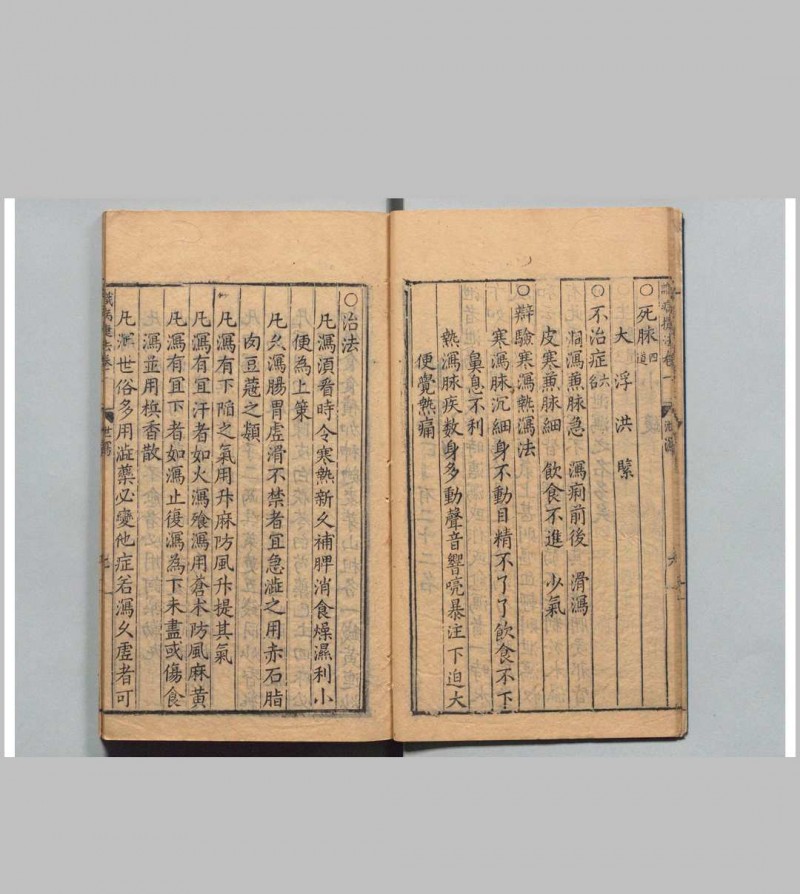 ○死脉四道
大　浮　洪　緊
○不治症六
洞瀉䓇脉急　瀉痢前後　滑瀉
皮寒䓇脉細　飲食不進　少氣
○辯驗寒瀉熱瀉法
寒瀉脉沉細身不動目精不了了飲食不下
鼻息不利
熱瀉脉疾数身多動聲音響喨暴注下迫大
便覺熱痛
○治法
凡瀉湏看時令寒熱新久補脾消食燥濕利小
便為上策
凡久瀉腸胃虛滑不禁者宜急澁之用赤石脂
肉豆蔻之類
凡瀉有下陷之氣用升麻防風升提其氣
凡瀉有宜汗者如火瀉飱瀉用蒼朮防風麻黄
凡瀉有宜下者如瀉止復瀉為下未盡或傷食
瀉並用檳香散
凡瀉世俗多用澁藥必變他症若瀉久虛者可